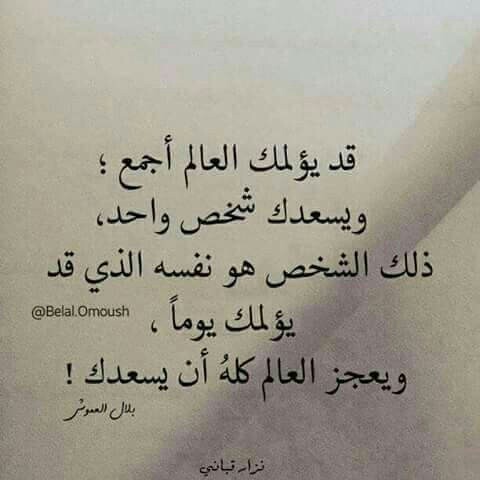 قد يؤلمك العالم أجمع ؛
ويسعدك شخص واحد،
ذلك الشخص هو نفسه الذي قد
يؤلمك يوماً ،
@Belal.Omoush
ويعجز العالم كلهُ أن يسعدك !
بلال العموش
نزار قباني